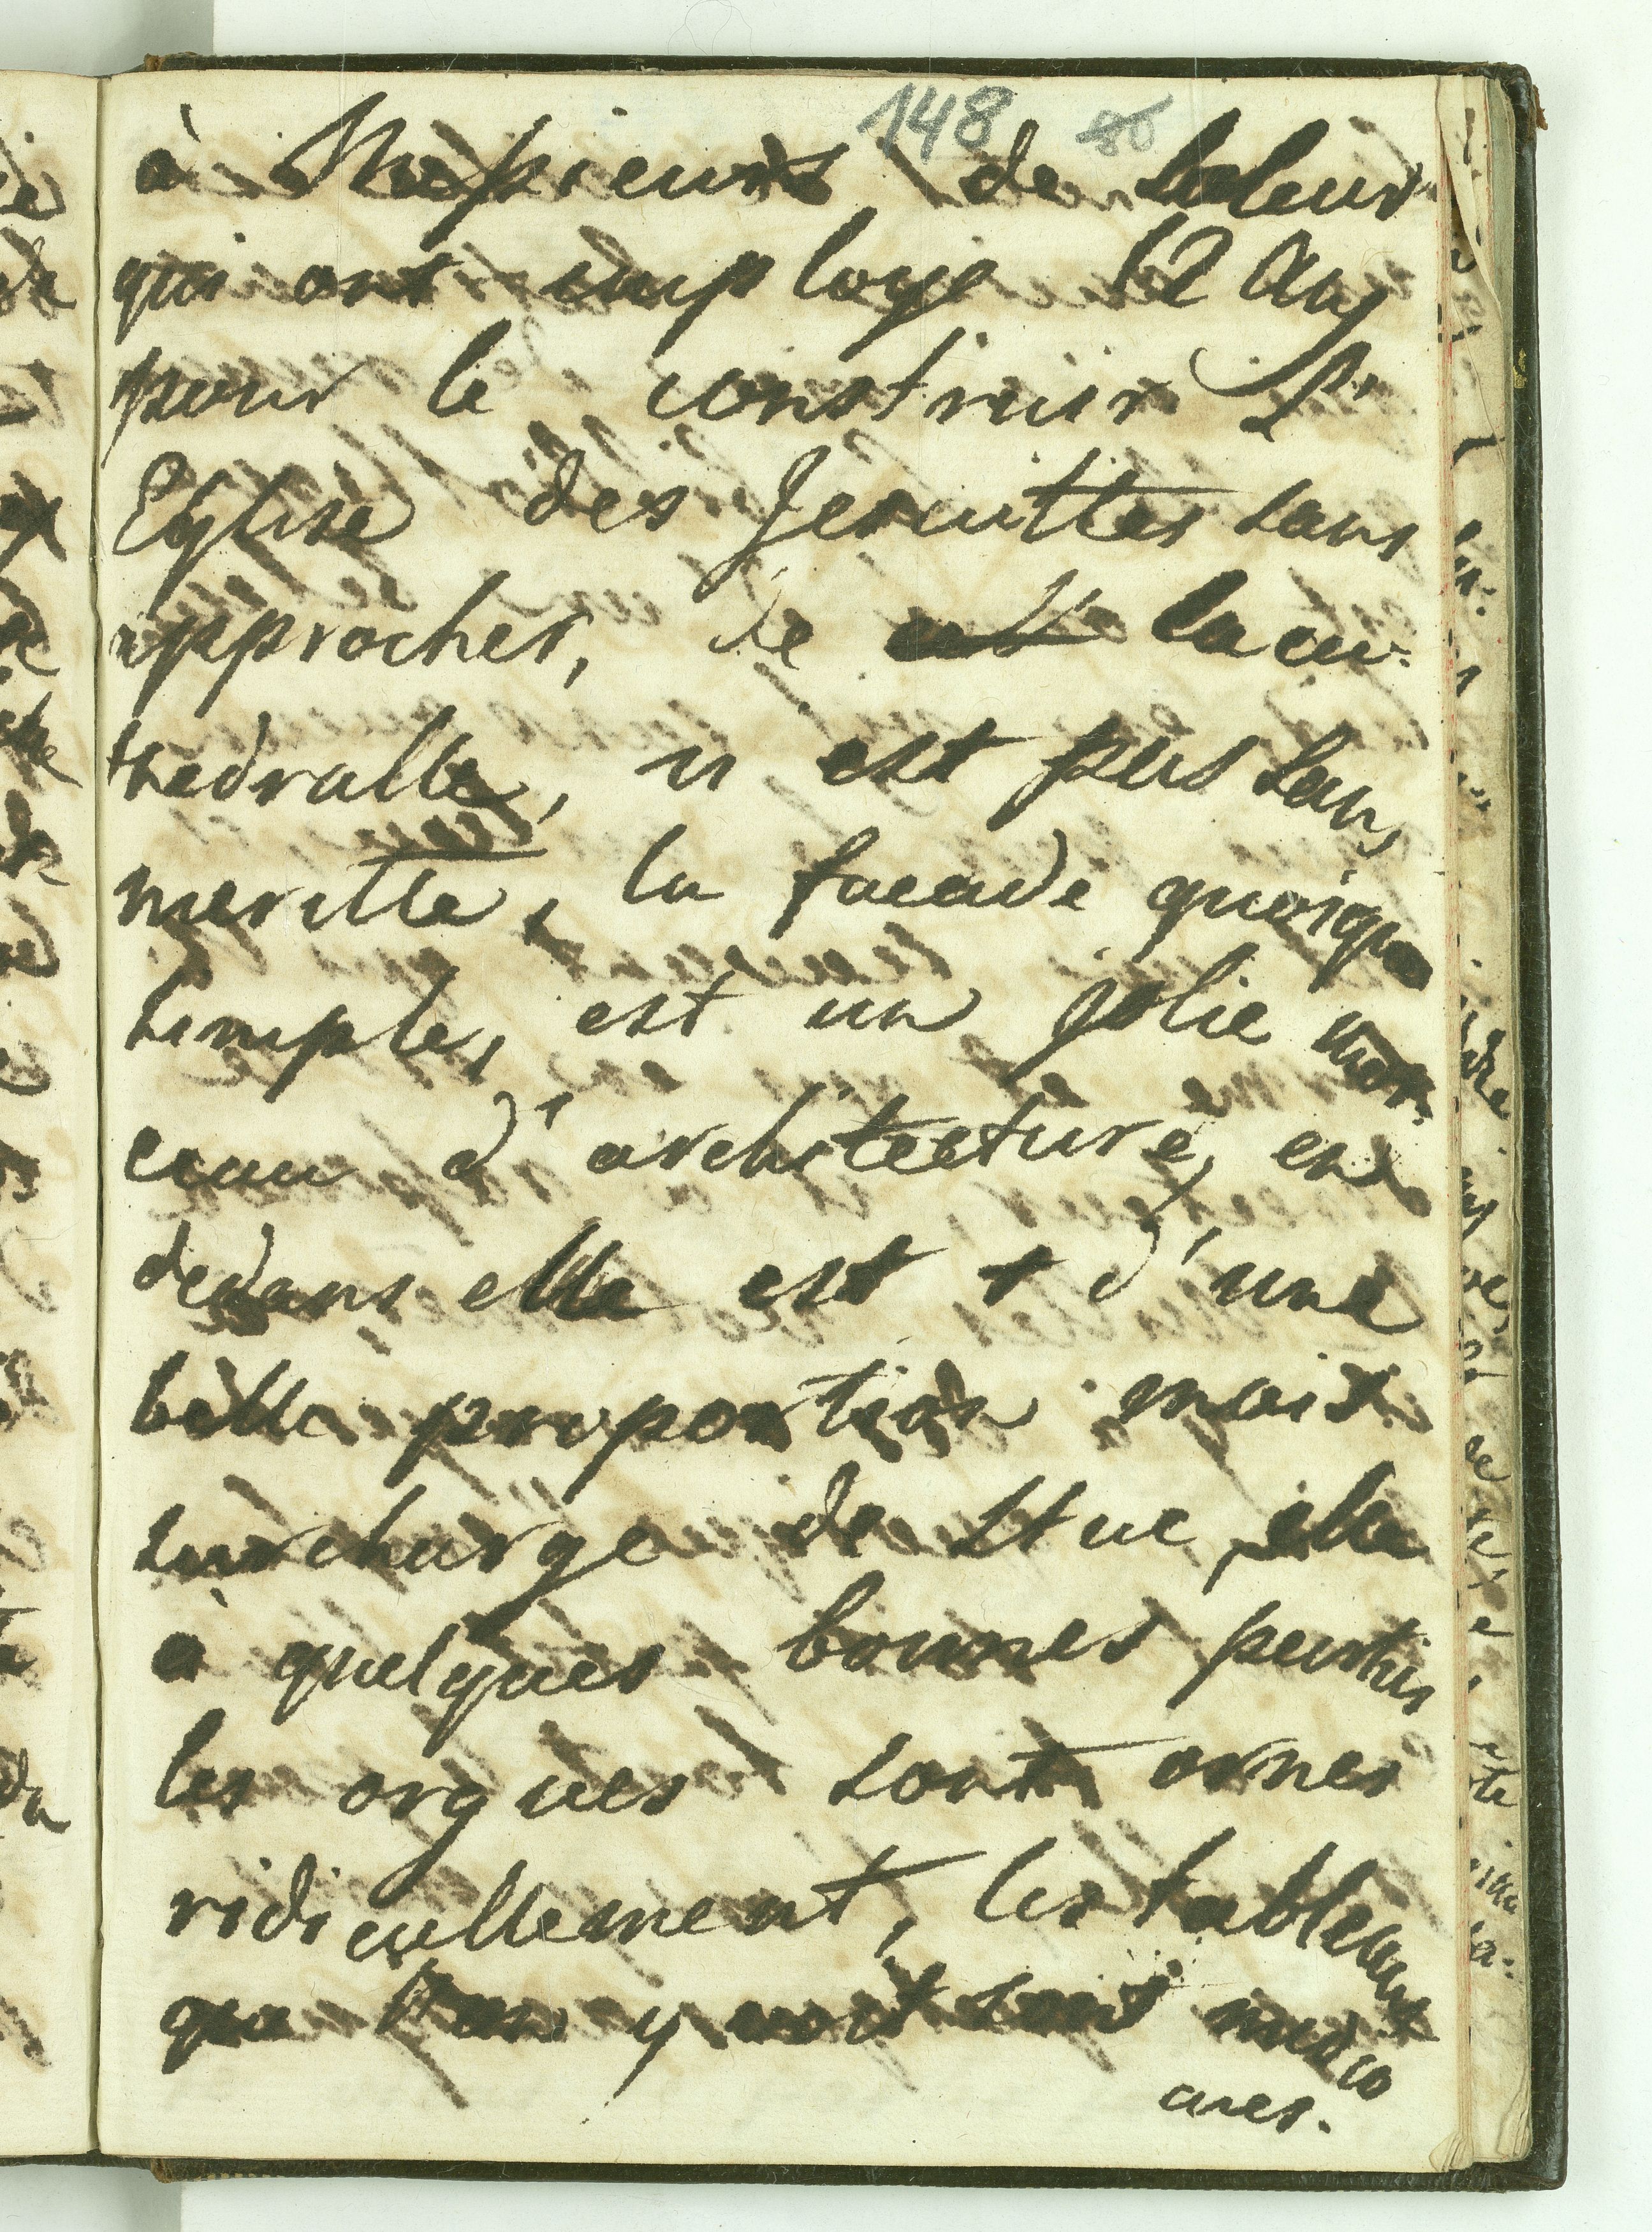 148 80
à Messieurs de Soleur
qui ont employe 12 Ans
pour le construir L'
Eglise des Jesuittes sans
approcher, de la ca-
thedralle, n est pas sans
meritte, la facade quoique
simple, est un jolie mor-
ceau d'architecture, en
dedans elle est + d'une
belle proportion mais
surcharge de Stuc, elle
à quelques bonnes parties
les orgues sont ornes
ridicullement, les tableaux
que l'on y voit sont medio
cres.